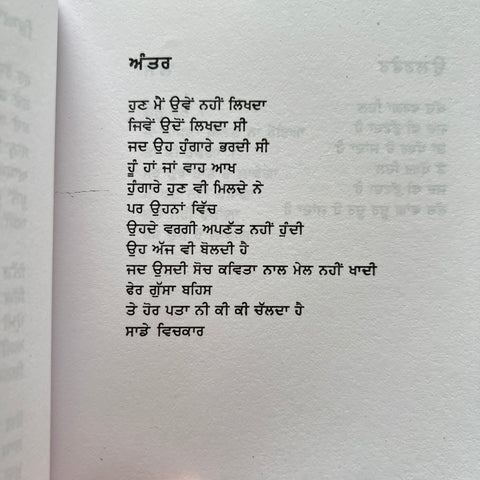 ਅੰਤਰ
ਹੁਣ ਮੈਂ ਉਵੇਂ ਨਹੀਂ ਲਿਖਦਾ
ਜਿਵੇਂ ਉਦੋਂ ਲਿਖਦਾ ਸੀ
ਜਦ ਉਹ ਹੁੰਗਾਰੇ ਭਰਦੀ ਸੀ
ਹੂੰ ਹਾਂ ਜਾਂ ਵਾਹ ਆਖ
ਹੁੰਗਾਰੇ ਹੁਣ ਵੀ ਮਿਲਦੇ ਨੇ
ਪਰ ਉਹਨਾਂ ਵਿੱਚ
ਉਹਦੇ ਵਰਗੀ ਅਪਣੱਤ ਨਹੀਂ ਹੁੰਦੀ
ਉਹ ਅੱਜ ਵੀ ਬੋਲਦੀ ਹੈ
ਜਦ ਉਸਦੀ ਸੋਚ ਕਵਿਤਾ ਨਾਲ ਮੇਲ ਨਹੀਂ ਖਾਦੀ
ਫੇਰ ਗੁੱਸਾ ਬਹਿਸ
ਤੇ ਹੋਰ ਪਤਾ ਨੀ ਕੀ ਕੀ ਚੱਲਦਾ ਹੈ
ਸਾਡੇ ਵਿਚਕਾਰ